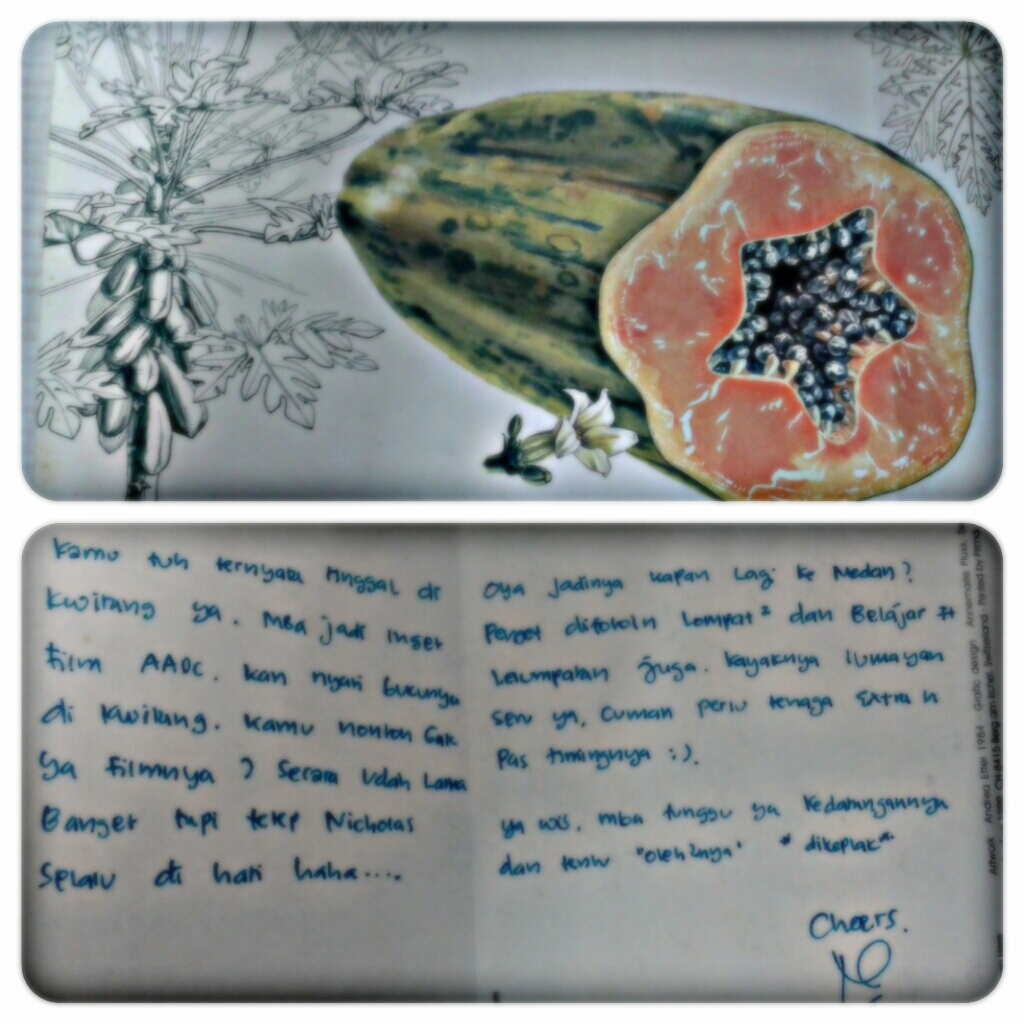 Kamu tuh ternyata tinggal di
Kwitang ya. Mba jadi inget
film AADC. kan nyari bukunya
di Kwitang. kamu nonton Gak
Ya filmnya? Secara Udah Lama
Banget tapi tetep Nicholas
Selalu di hati haha....
Oya jadinya kapan Lagi ke Medan?
Penget difotoin Lompat² dan Belajar
Lompatan juga. Kayaknya lumayan
seru ya, Cuman perlu tenaga extra n
Pas timingnya :).
ya wis. mba tunggu ya kedatangannya
dan tentu "oleh2nya" *dikeplak*
Cheers.
Artwork - Andrea Etter 1984 - Grafic design - Annemarie Pluss